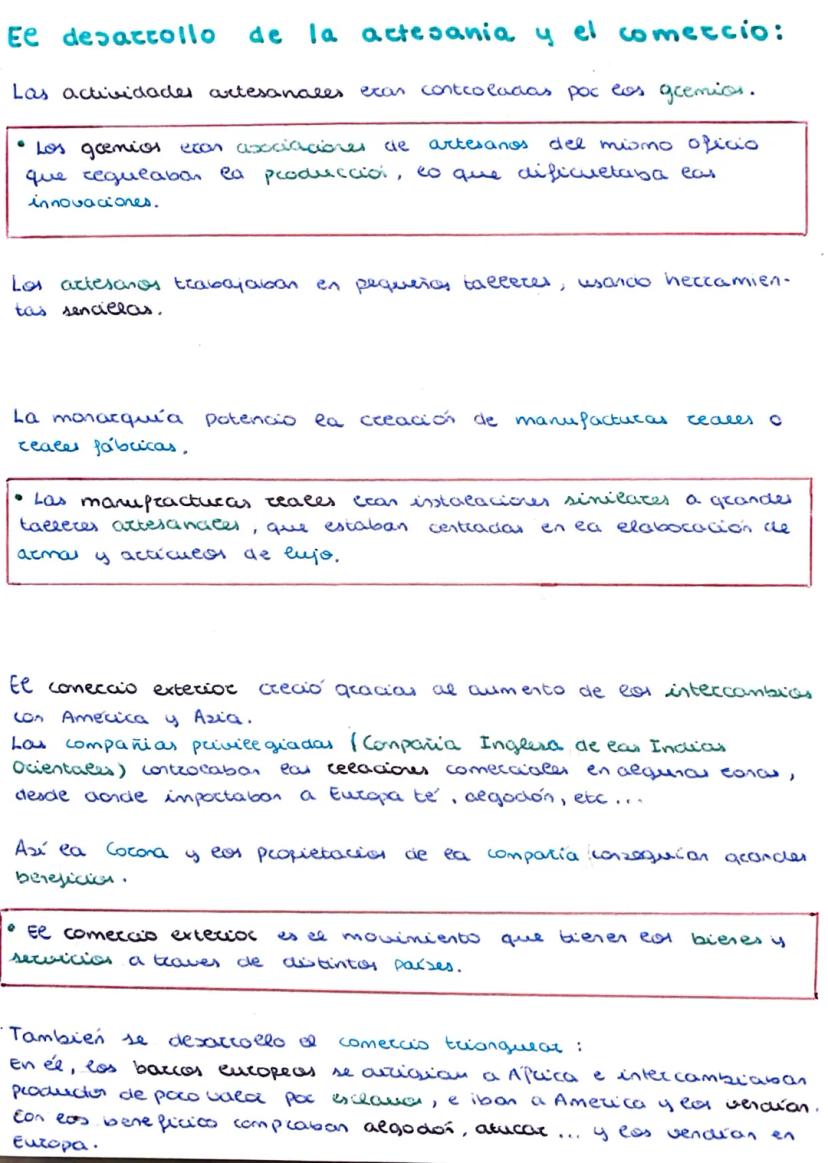 El desarrollo de la artesania y el comercio:
Las actividades artesanales eran controladas por los gremios.
• Los gremios eran asociaciones de artesanos del mismo oficio
que regulaban la producción, lo que dificultaba las
innovaciones.
Los artesanos trabajaban en pequeños talleres, usando herramien-
tas sencillas.
La monarquía potencio la creación de manufacturas reales o
reales fábricas.
• Las manufracturas reales eran instalaciones similares a grandes
talleres artesanales, que estaban centradas en la elaboración de
armas y artículos de lujo.
El comercio exterior creció gracias al aumento de los intercambios
con América y Asia.
Las compañias privilegiadas (Compañia Inglesa de las Indias
Orientales) controlaban las relaciones comerciales en algunas zonas,
desde donde importaban a Europa té, algodón, etc...
Así la Corona y los propietarios de la compañia conseguían grandes
beneficios.
• El comercio exterior es el movimiento que tienen los bienes y
servicios a traves de distintos países.
También se desarrollo el comercio triangular:
En él, los barcos europeos se dirigian a Africa e intercambiaban
productos de poco valor por esclavos, e iban a America y los vendían.
Con los beneficios compraban algodón, azucar... y los vendían en
Europa.